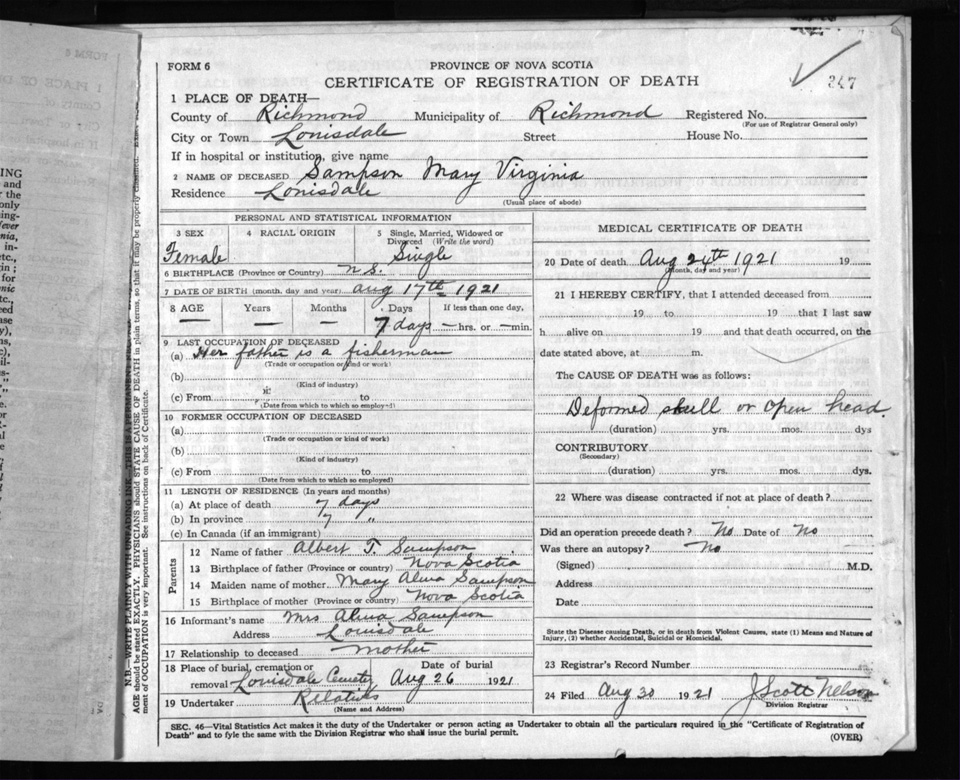 FORM 6
PROVINCE OF NOVA SCOTIA
CERTIFICATE OF REGISTRATION OF DEATH
347
1 PLACE OF DEATH—
County of Richmond Municipality of Richmond Registered No.
(For use of Registrar General only)
City or Town Louisdale Street House No.
If in hospital or institution, give name
2 NAME OF DECEASED Sampson Mary Virginia
Residence Louisdale
(Usual place of abode)
PERSONAL AND STATISTICAL INFORMATION
3 SEX 4 RACIAL ORIGIN 5 Single, Married, Widowed or Divorced (Write the word)
Female Single
6 BIRTHPLACE (Province or Country) N S.
7 DATE OF BIRTH (month, day and year) Aug 17th 1921
8 AGE Years Months Days If less than one day,
— — — 7 days — hrs. or — min.
9 LAST OCCUPATION OF DECEASED
(a) Her father is a fisherman
(Trade or occupation or kind or work)
(b)
(Kind of industry)
(c) From to
(Date from which to which so employed)
10 FORMER OCCUPATION OF DECEASED
(a)
(Trade or occupation or kind of work)
(b)
(Kind of industry)
(c) From to
(Date from which to which so employed)
11 LENGTH OF RESIDENCE (In years and months)
(a) At place of death 7 days
(b) In province 7 "
(c) In Canada (if an immigrant)
Parents
12 Name of father Albert T. Sampson
13 Birthplace of father (Province or country) Nova Scotia
14 Maiden name of mother Mary Alma Sampson
15 Birthplace of mother (Province or country) Nova Scotia
16 Informant's name Mrs Alma Sampson
Address Louisdale
17 Relationship to deceased Mother
18 Place of burial, cremation or Date of burial
removal Louisdale Cemetry Aug 26 1921
19 Undertaker Relatives
(Name and Address)
MEDICAL CERTIFICATE OF DEATH
20 Date of death Aug 24th 1921 19
(Month, day and year)
21 I HEREBY CERTIFY, that I attended deceased from
19 to 19 that I last saw
h alive on 19 and that death occurred, on the
date stated above, at m.
The CAUSE OF DEATH was as follows:
Deformed skull or open head.
(duration) yrs. mos. dys
CONTRIBUTORY
(Secondary)
(duration) yrs. mos. dys.
22 Where was disease contracted if not at place of death?
Did an operation precede death? No Date of No
Was there an autopsy? No
(Signed) M.D.
Address
Date
State the Disease causing Death, or in death from Violent Causes, state (1) Means and Nature of
Injury, (2) whether Accidental, Suicidal or Homicidal.
23 Registrar's Record Number
24 Filed Aug 30 1921 J Scott Nelson
Division Registrar
SEC. 46—Vital Statistics Act makes it the duty of the Undertaker or person acting as Undertaker to obtain all the particulars required in the "Certificate of Registration of
Death" and to fyle the same with the Division Registrar who shall issue the burial permit.
(OVER)
AGE should be stated EXACTLY. PHYSICIANS should STATE CAUSE OF DEATH in plain terms, so that it may be properly classified.
ment of OCCUPATION is very important. See instructions on back of Certificate.